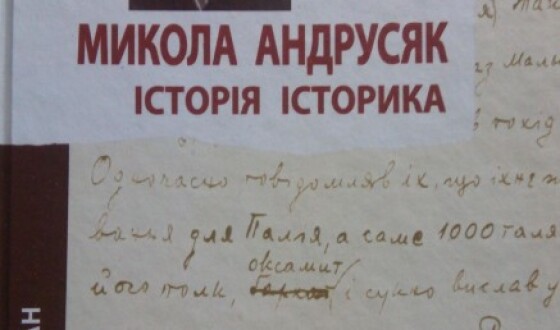 МИКОЛА АНДРУСЯК
ІСТОРІЯ ІСТОРИКА
аз Малы
в похід
Одночасно повідомляв їх, що їхнє
вання для Палія, а саме 1000 таля
оксамит
його полк, і сукно вислав у
АН